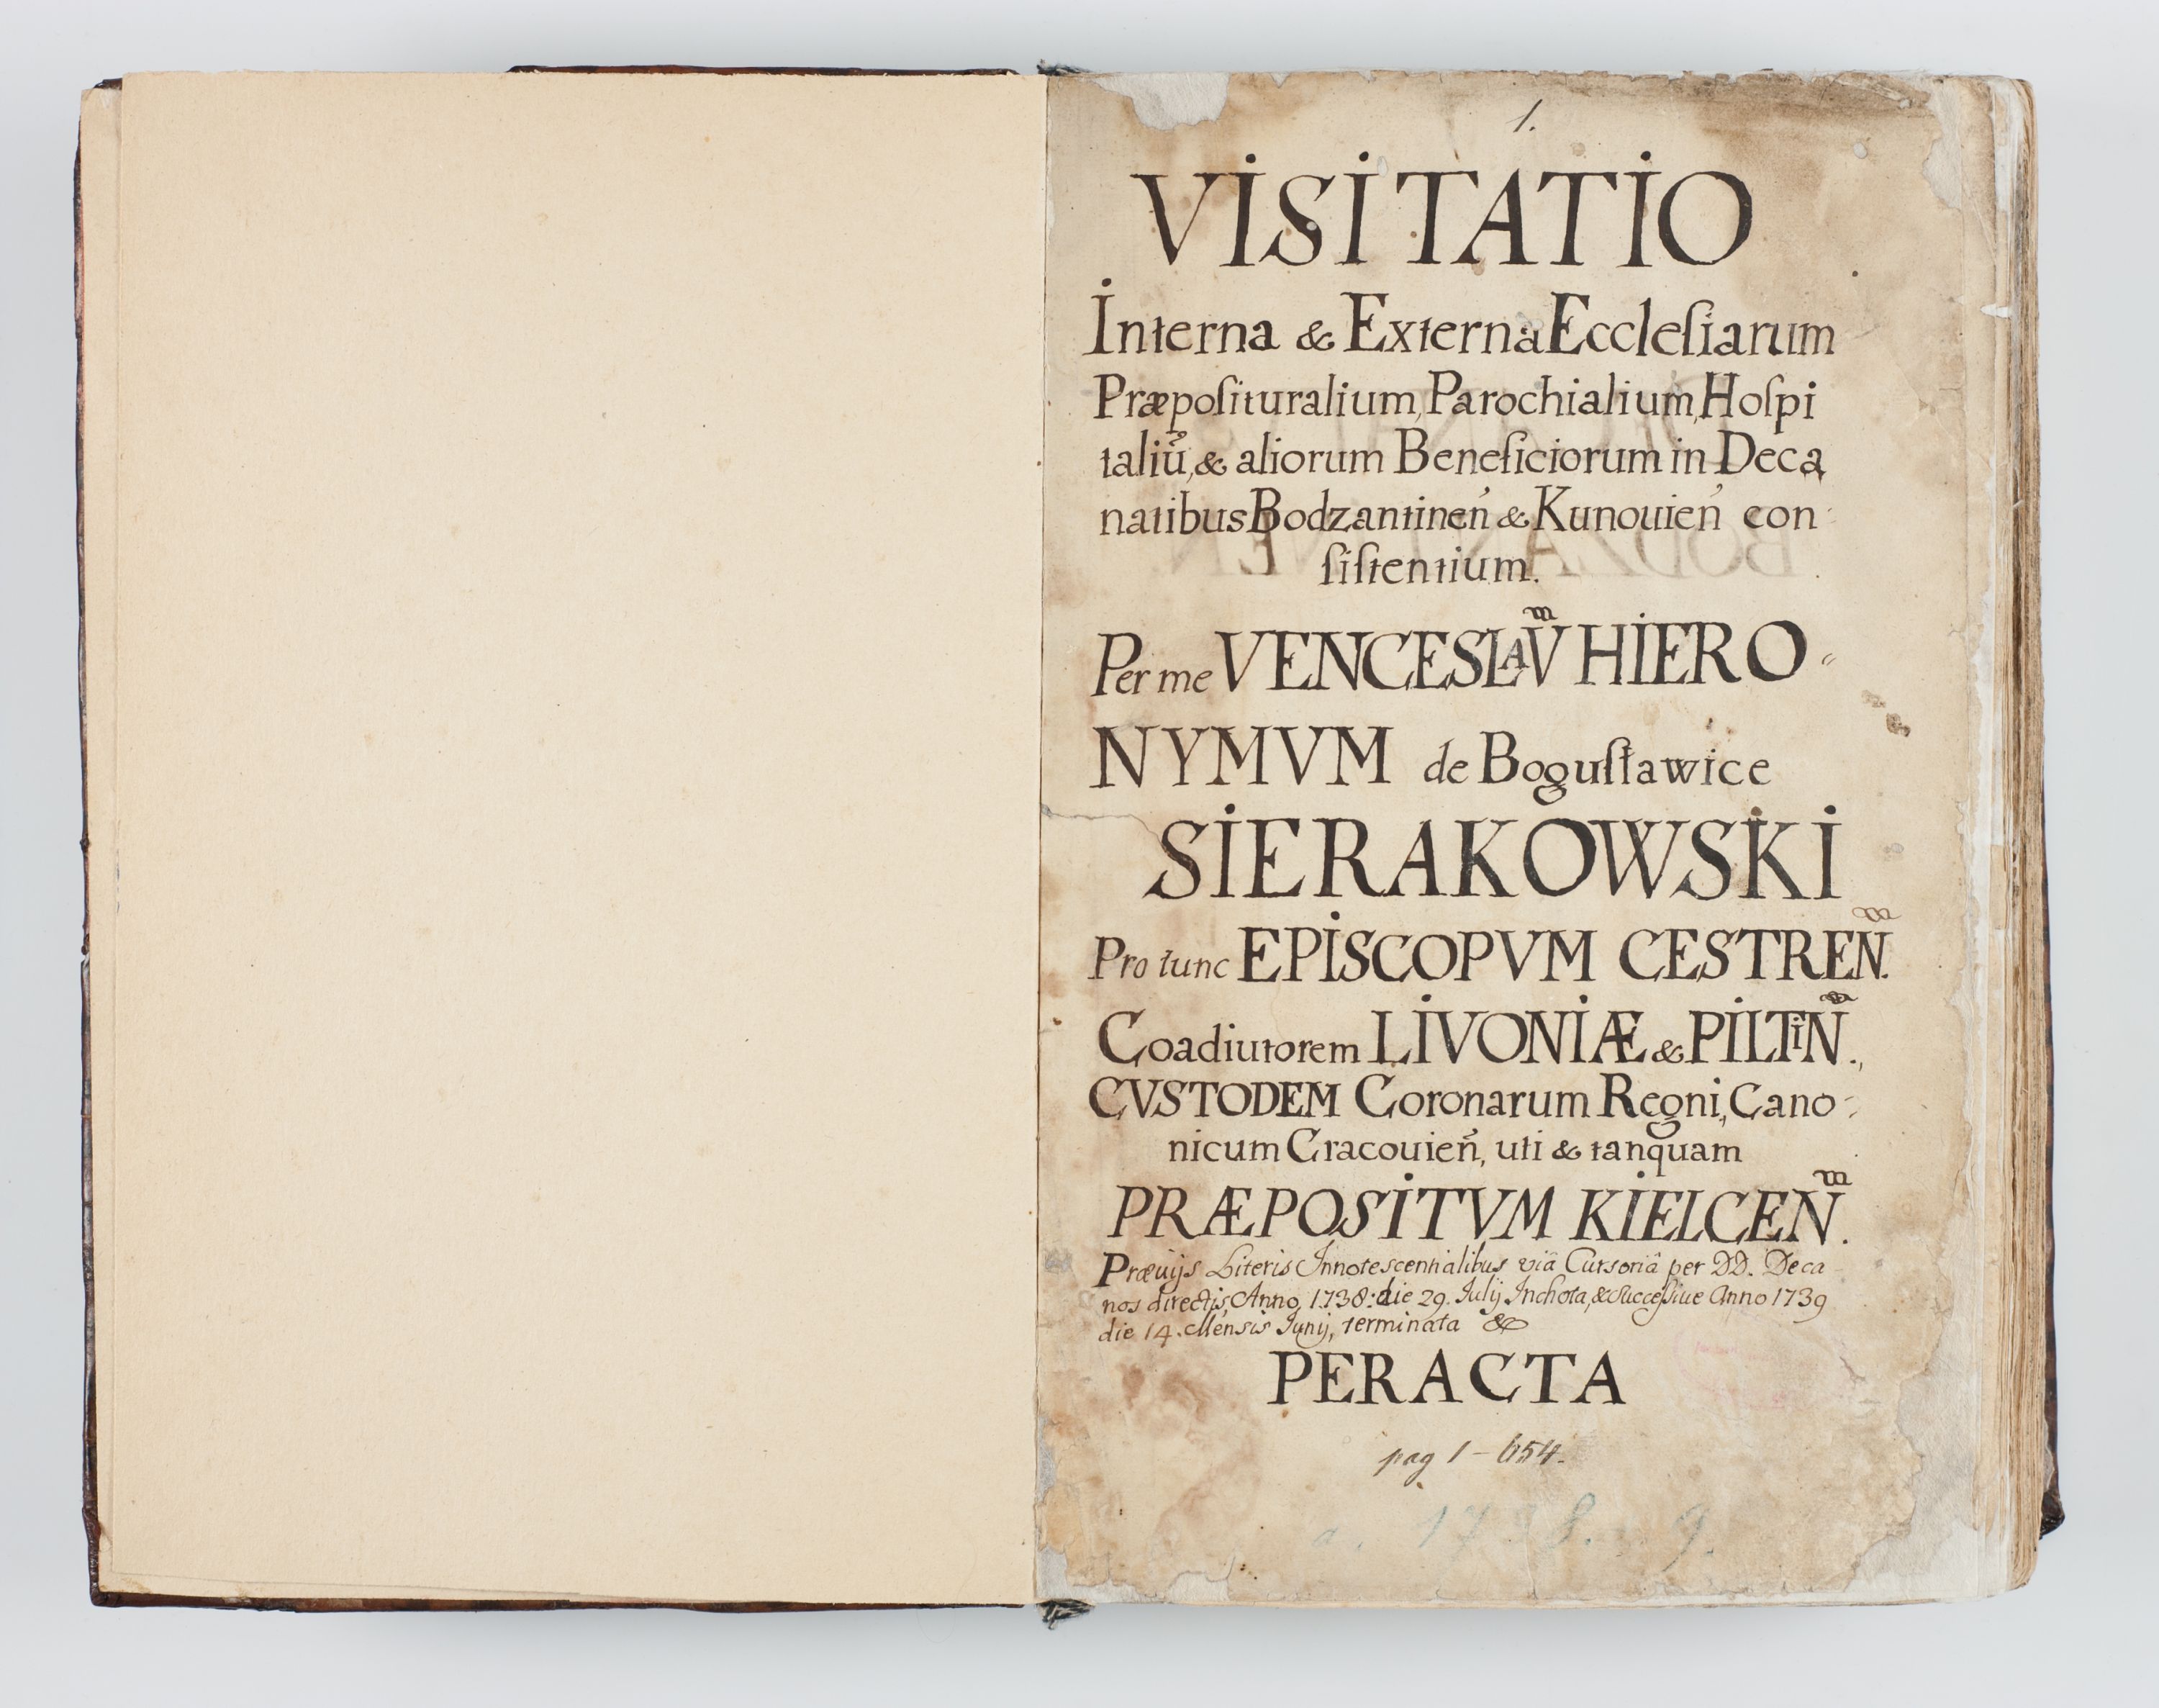 1.
VISITATIO
Interna & Externa Eccleſiarum
Præpoſituralium, Parochialium, Hoſpi
taliũ, & aliorum Beneficiorum in Deca
natibus Bodzantineñ & Kunouieñ con:
ſiſtentium.
Per me VENCESLAV̄m HIERO=
NYMVM de Boguſławice
SIERAKOWSKI
Pro tunc EPISCOPVM CESTREN̄m.
Coadiutorem LIVONIÆ & PILTiN̄m.,
CVSTODEM Coronarum Regni, Cano:
nicum Cracouieñ, uti & tanquam
PRÆPOSITVM KIELCEN̄m.
Præuijs Literis Innotescentialibus viâ Cursoriâ per DD. Deca
nos directis, Anno 1738: die 29. Julij Inchota, & Succeſſiue Anno 1739
die 14. Mensis Junij, terminata &
PERACTA
pag 1 – 654.
a. 17 8. 9.